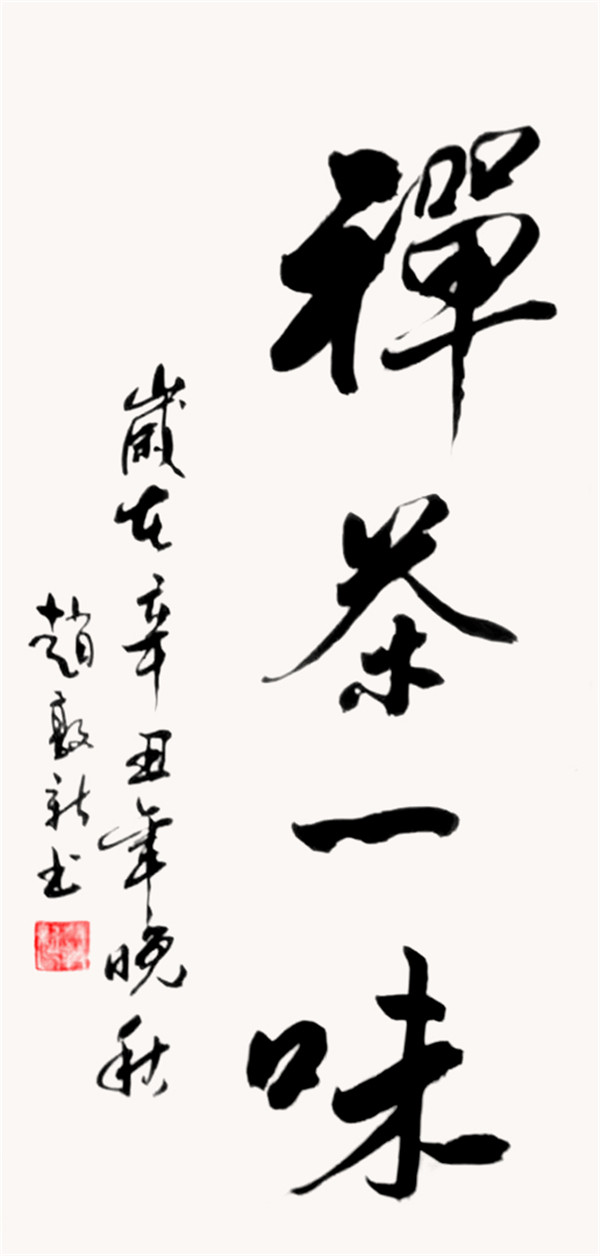 禪茶一味
歲在辛丑年晚秋
趙敦新书